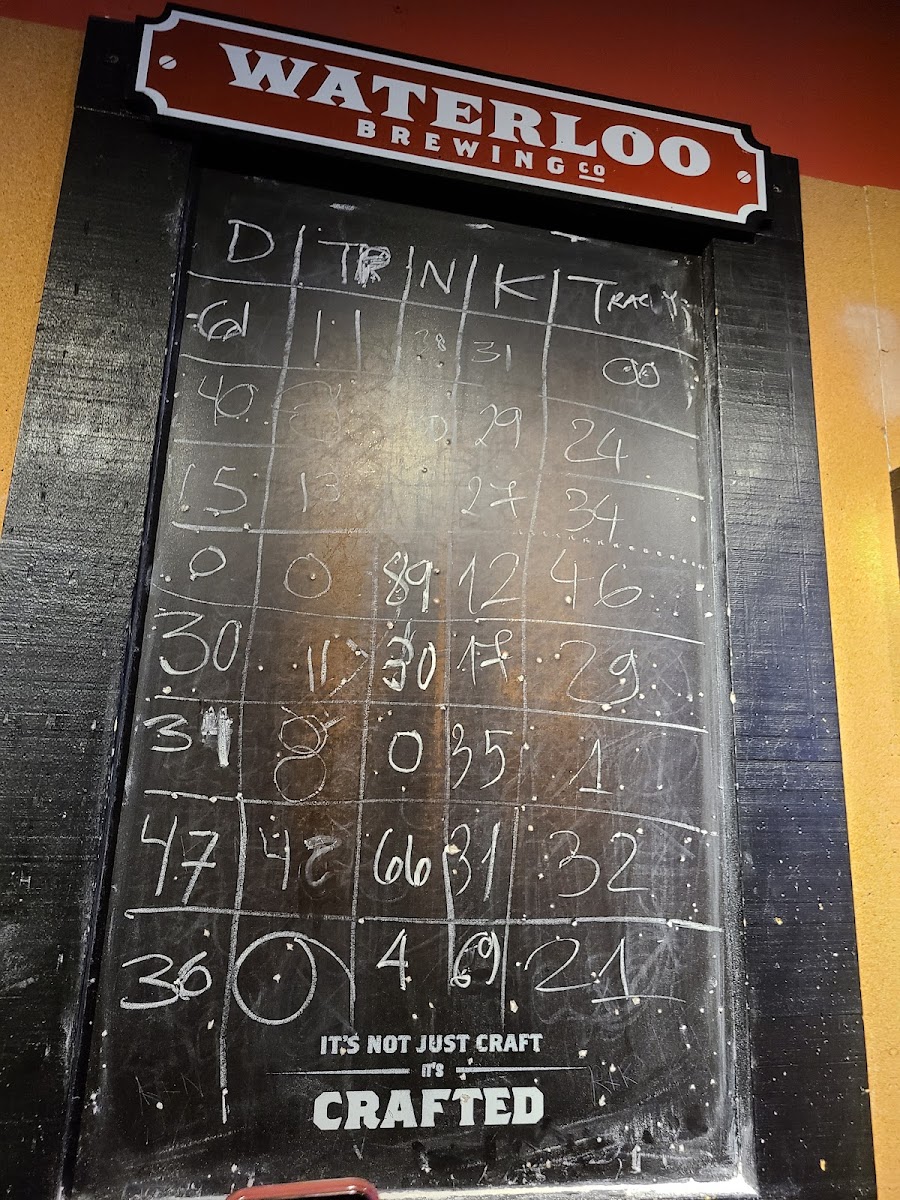 WATERLOO
BREWING CO
D TR N K TRACY
61 11 28 31 00
40 29 24
15 13 27 34
0 0 89 12 46
30 11 30 17 29
34 8 0 35 1
47 42 66 31 32
36 0 4 69 21
IT'S NOT JUST CRAFT
IT'S
CRAFTED